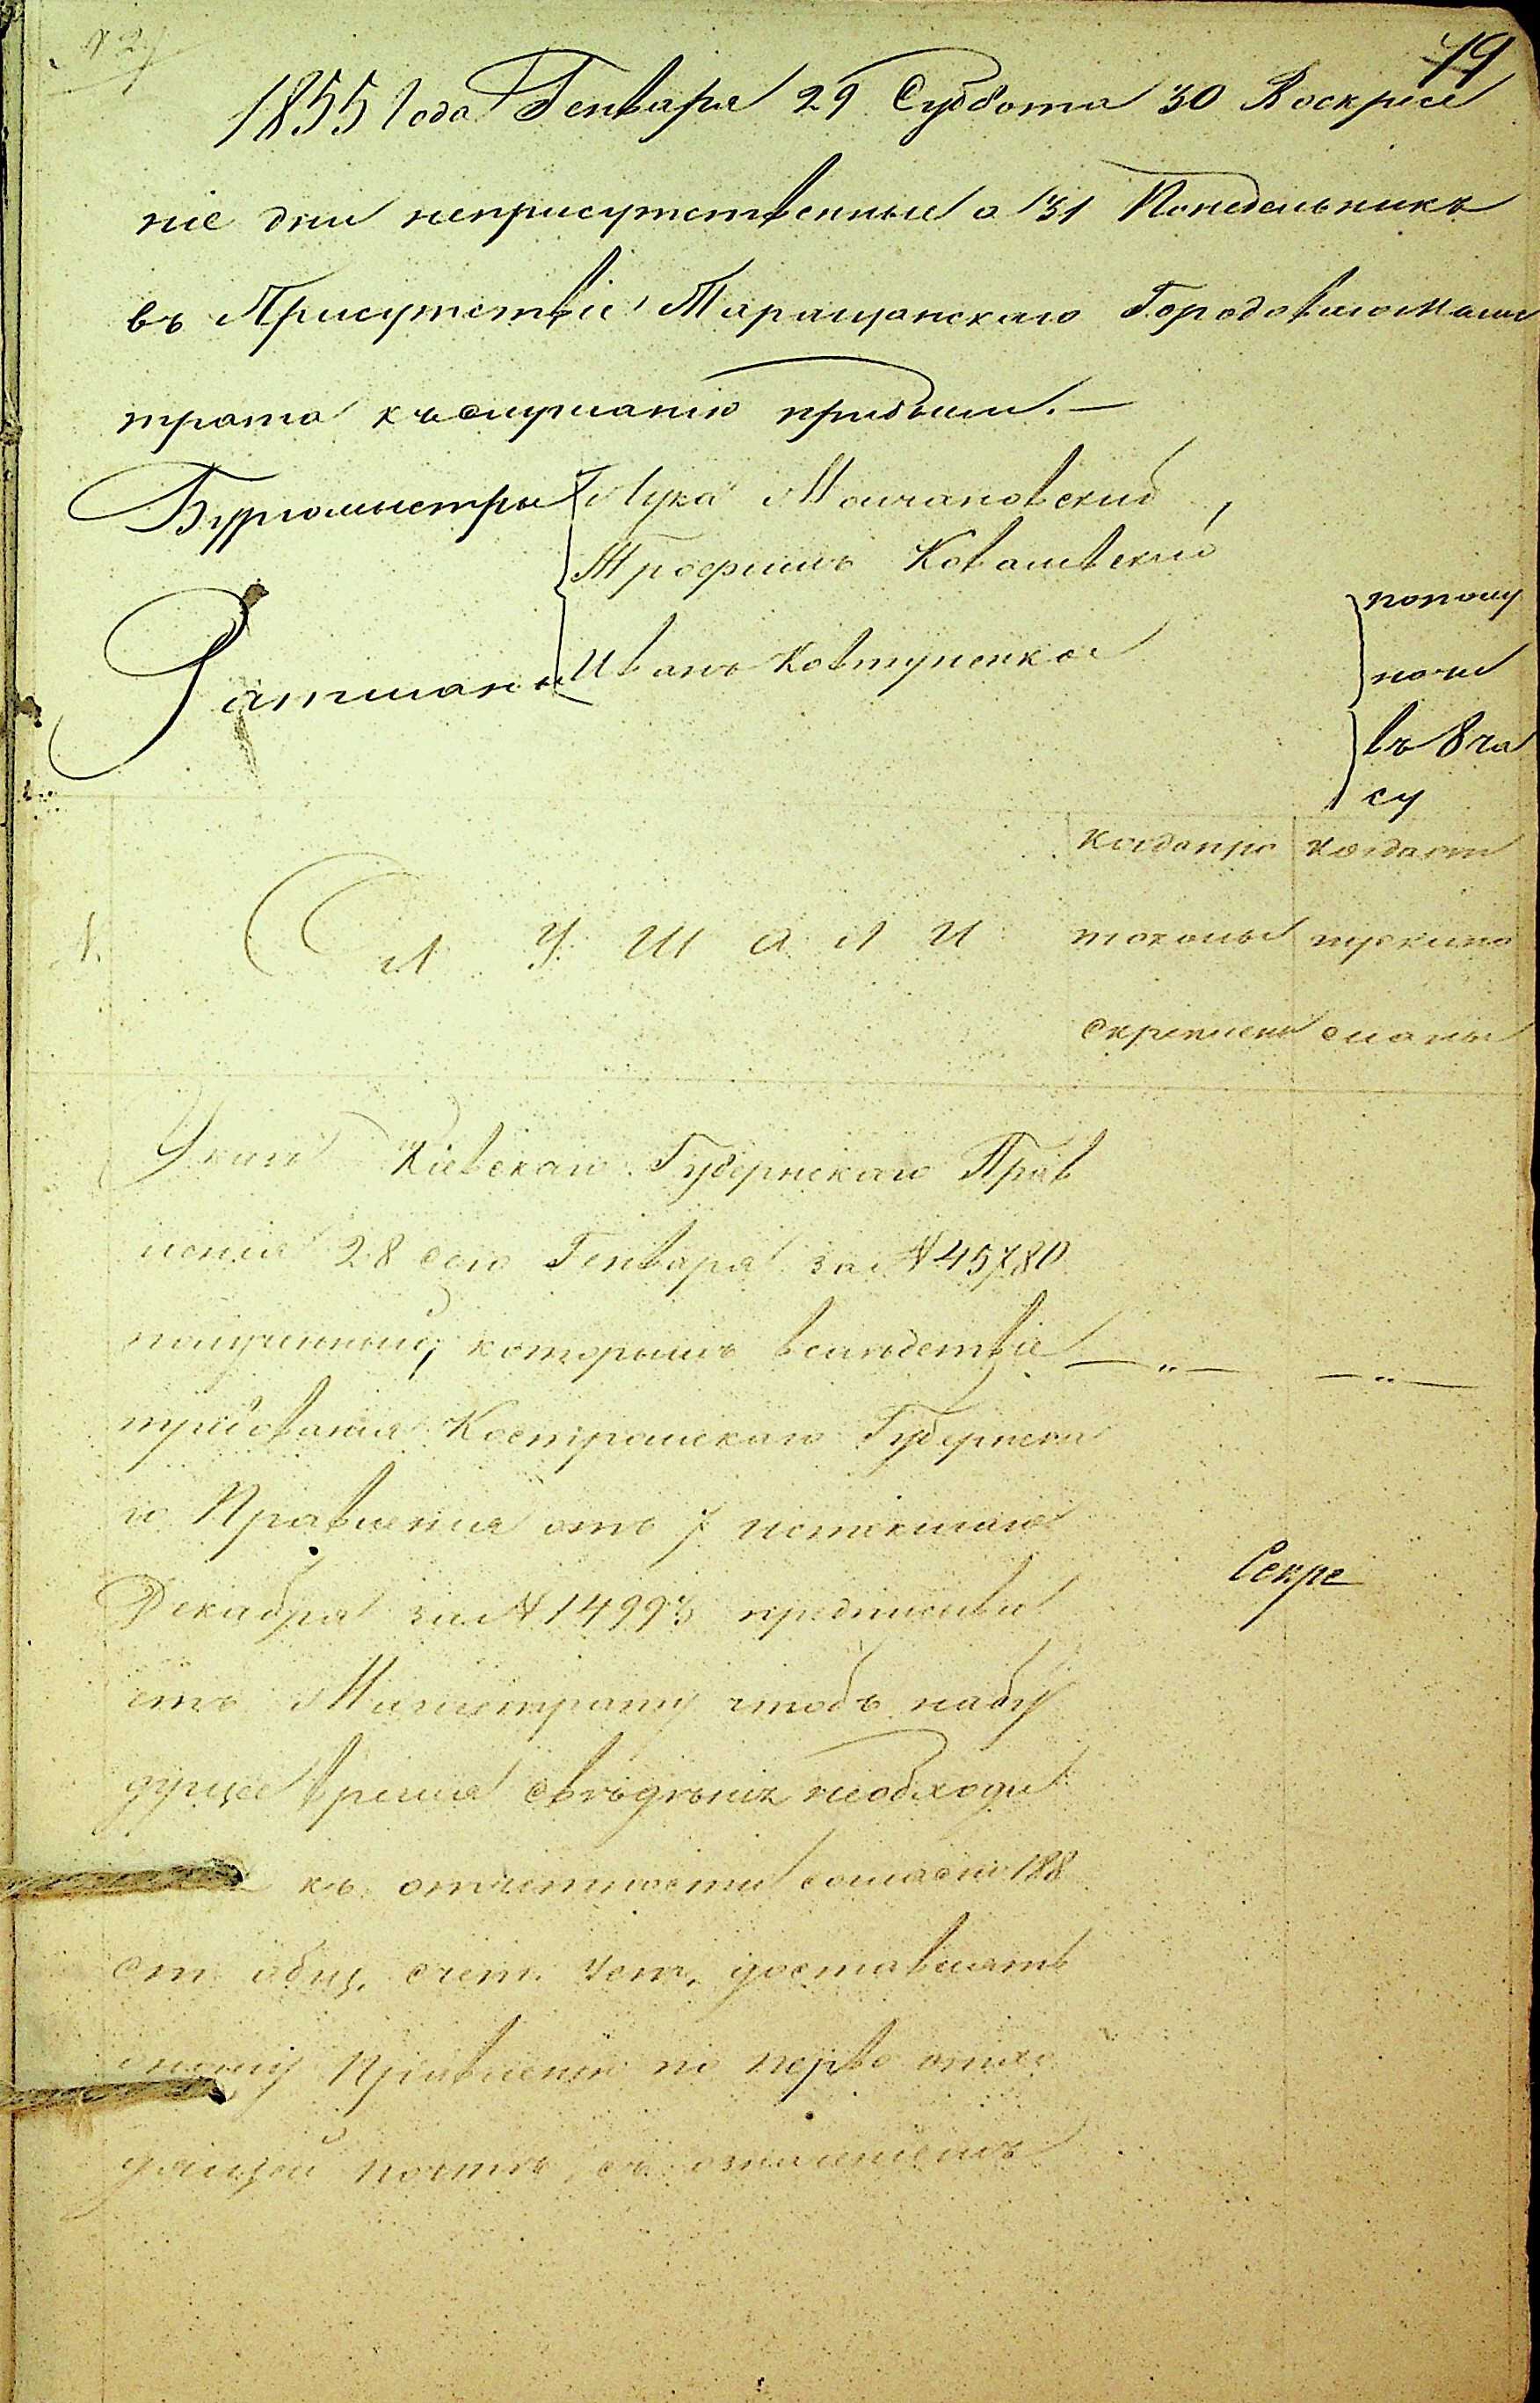 19
1855 года Генваря 29 Суббота 30 Воскресе
ніе дни неприсутственные а 31 Понедельникъ
въ Присутствіе Таращанскаго Городоваго Магис
трата къ слушанію прибыли. —
Бургомистры Лука Молчановскій,
Трофимъ Ковалевскій
Ратманъ Иванъ Ковтуненко
пополу
ночи
въ 8 ча
су
1.
СЛУШАЛИ
когда про
токолы
скреплены
когда от
пускипо
сланы
Указ Кіевскаго Губернскаго Прав
ленія 28 сего Генваря за № 45780
полученный, которымъ вследствіе — „ — — „ —
требованія Костромскаго Губернска
го Правленія отъ 7 истекшаго
Декабря за № 14993 предписыва
етъ Магистрату чтобъ набу
дущее время сведенія необходи
къ отчетности согласно 188
ст. общ. счет. уст. доставлять
Правленію по перво отхо
дящей почте, съ
Секре